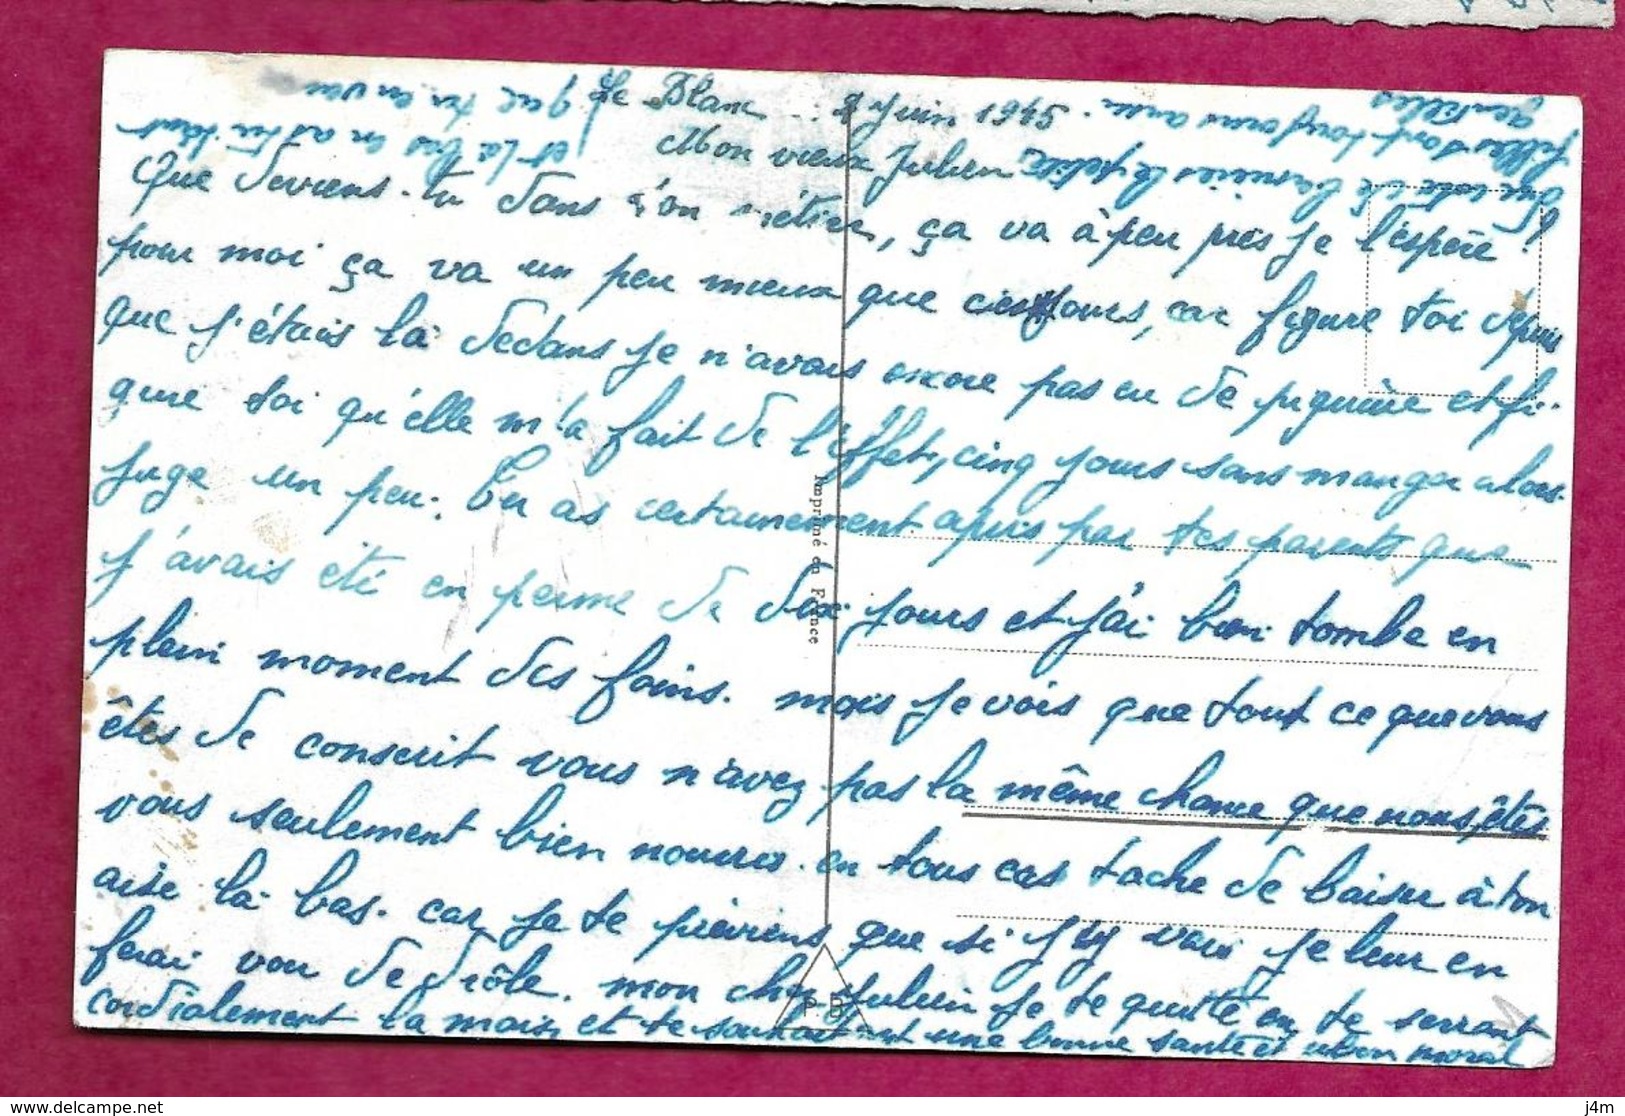 Le Blanc .. 8 Juin 1945
Mon vieux Julien
Que deviens-tu dans t'on métier, ça va à peu près je l'espère !
pour moi ça va un peu mieux que ces jours, car figure toi depuis
que j'étais là dedans je n'avais encore pas eu de piqure et fi-
gure toi qu'elle m'a fait de l'éffet, cinq jours sans manger alors
juge un peu. Tu as certainement apris par tes parents que
j'avais été en perme de dix jours et j'ai bien tombe en
plein moment des foins. mais je vois que tout ce que vous
êtes de conscrit vous n'avez pas la même chance que nous, êtes
vous seulement bien nourris. en tous cas tache de baiser à ton
aise là bas. car je te préviens que si j'y vais je leur en
ferai voir de drôle. mon cher Julien je te quitte en te serrant
cordialement la main et te souhaitant une bonne santé et bon moral
et la bas en as tu tant
que tu en veu
du coté de les petites
filles sont toujours aussi
gentilles
Imprimé en France
j4m
https://www.delcampe.net